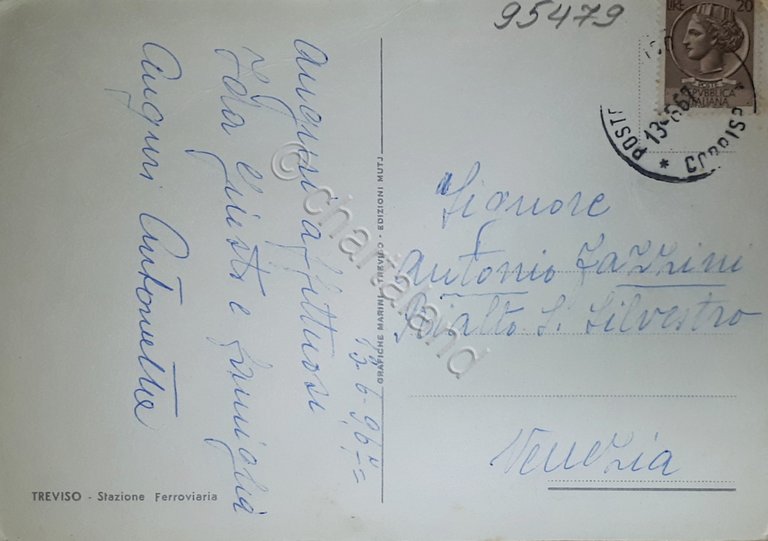 95479
LIRE 20
POSTE
REPUBBLICA
ITALIANA
13-6-67
Auguri affettuosi
Ida Giusti e famiglia
Auguri Antonietta
GRAFICHE MARINI - TREVISO - EDIZIONI MUTJ
Signore
Antonio Fazzini
Rialto S. Silvestro
Venezia
TREVISO - Stazione Ferroviaria
© chartaland